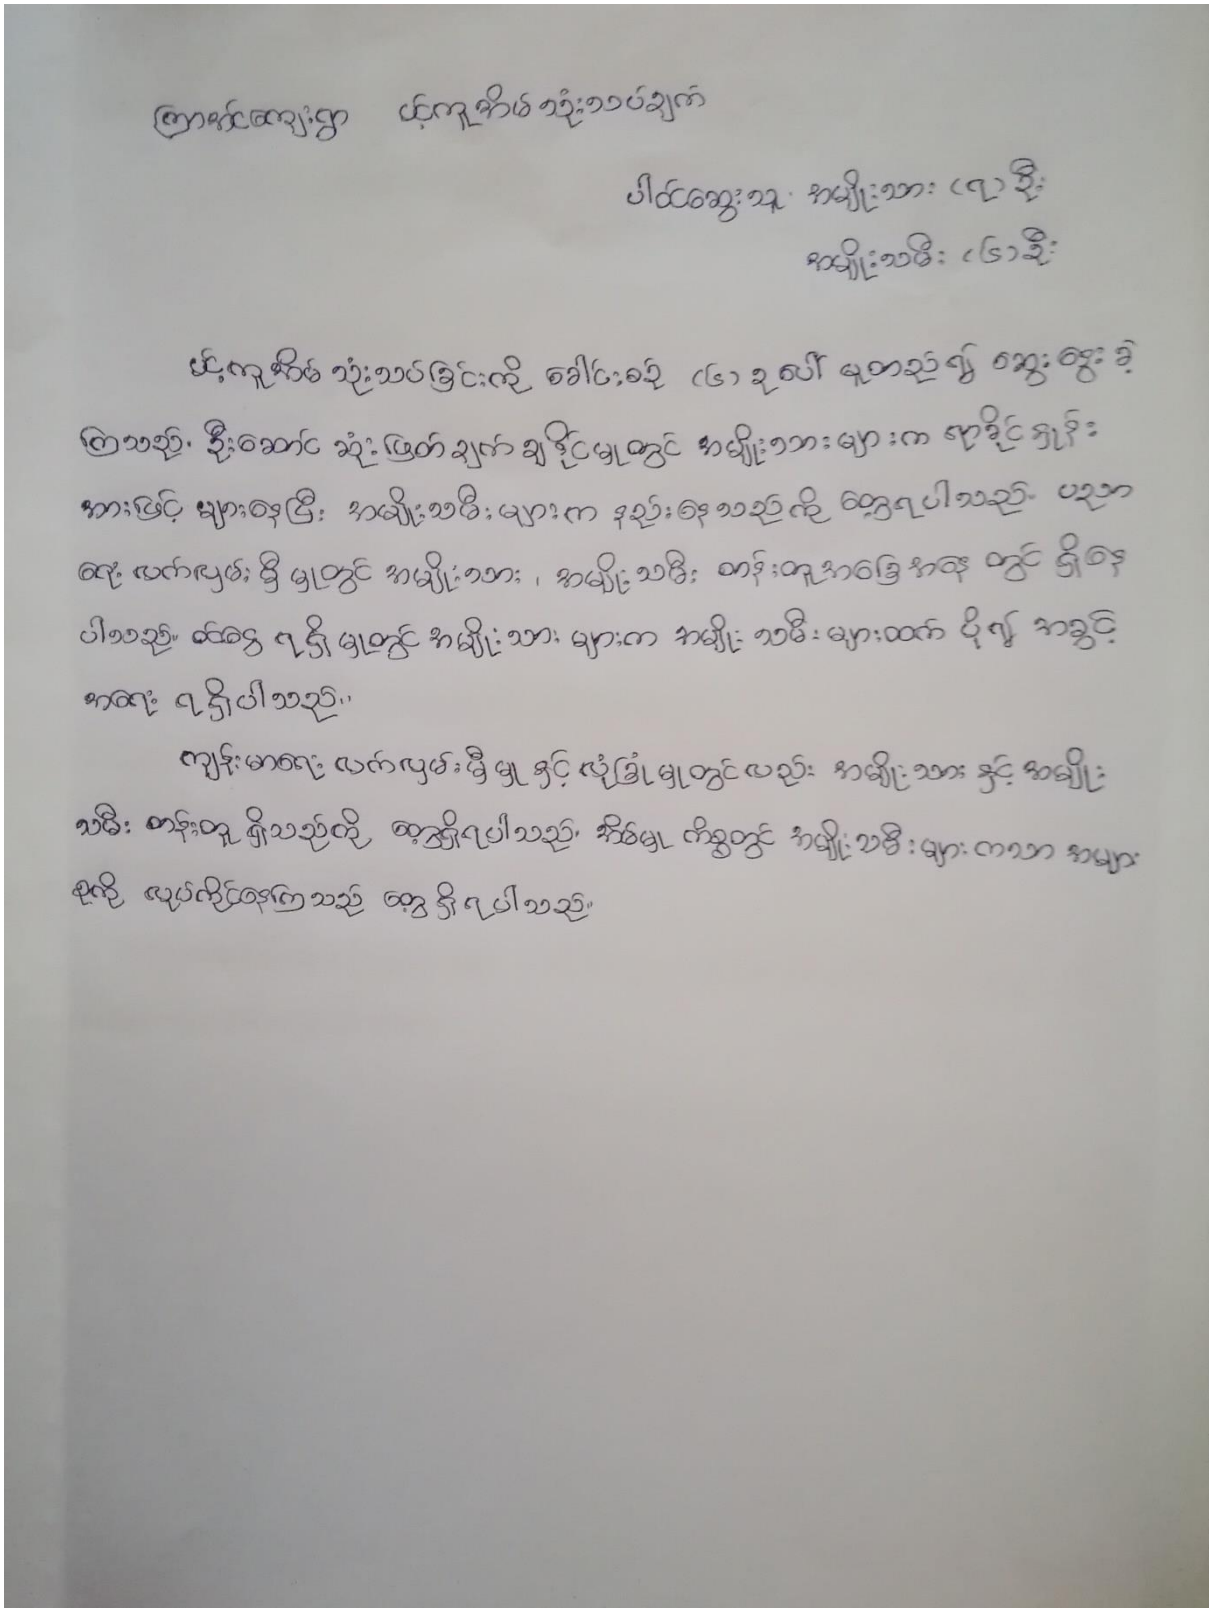 ကြာအင်ကျေးရွာ ပင့်ကူအိမ် သုံးသပ်ချက်
ပါဝင်ဆွေးသူ အမျိုးသား (၇) ဦး
အမျိုးသမီး (၆) ဦး
ပင့်ကူအိမ် သုံးသပ်ခြင်းကို ခေါင်းစဉ် (၆) ခုပေါ် မူတည်၍ ဆွေးနွေးခဲ့
ကြသည်။ ဦးဆောင် ဆုံးဖြတ်ချက် ချနိုင်မှုတွင် အမျိုးသားများက ရာခိုင်နှုန်း
အားဖြင့် များနေပြီး အမျိုးသမီးများက နည်းနေသည်ကို တွေ့ရပါသည်။ ပညာ
ရေး လက်လှမ်းမှီမှုတွင် အမျိုးသား ၊ အမျိုးသမီး တန်းတူအခြေအနေ တွင် ရှိနေ
ပါသည်။ ဝင်ငွေ ရရှိမှုတွင် အမျိုးသားများက အမျိုးသမီးများထက် ပို၍ အခွင့်
အရေး ရရှိပါသည်။
ကျန်းမာရေး လက်လှမ်းမှီမှု နှင့် လုံခြုံမှုတွင်လည်း အမျိုးသား နှင့် အမျိုး
သမီး တန်းတူ ရှိသည်ကို တွေ့ရှိရပါသည်။ အိမ်မှု ကိစ္စတွင် အမျိုးသမီးများကသာ အများ
စုကို လုပ်ကိုင်နေကြသည် တွေ့ရှိရပါသည်။